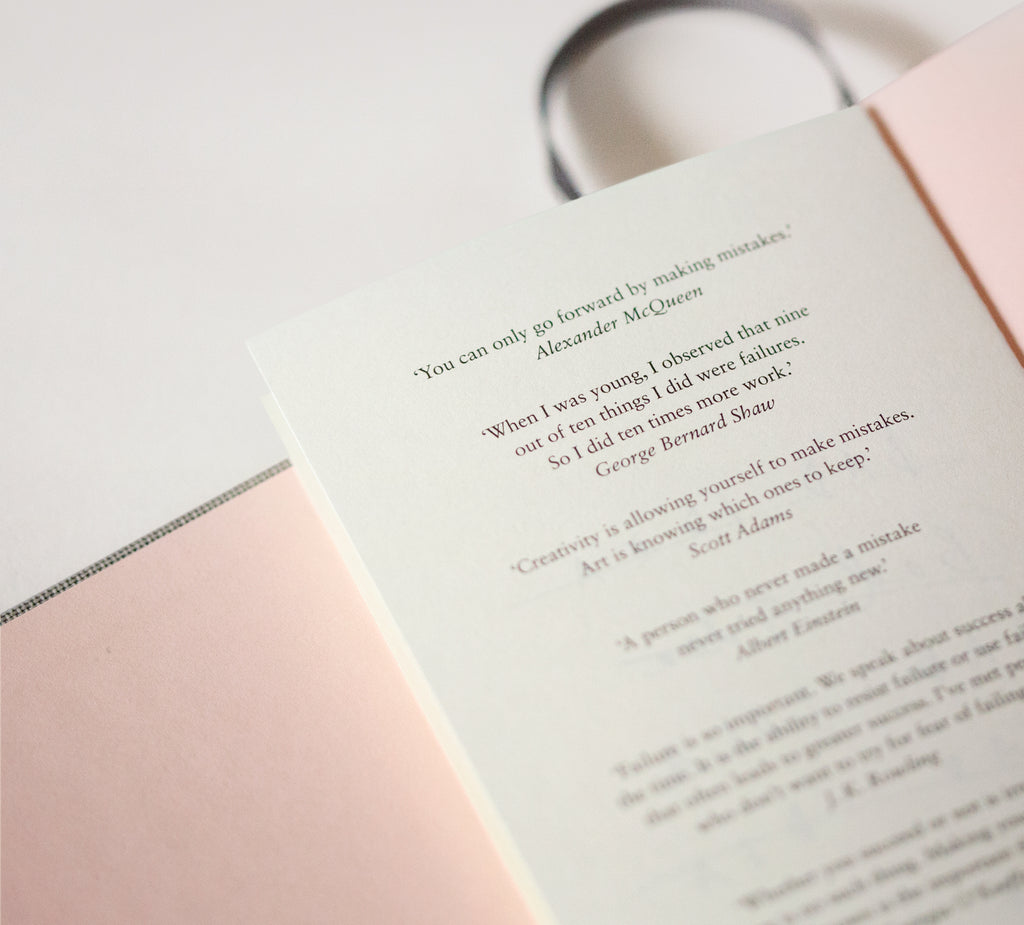 ‘You can only go forward by making mistakes.’
Alexander McQueen
‘When I was young, I observed that nine
out of ten things I did were failures.
So I did ten times more work.’
George Bernard Shaw
‘Creativity is allowing yourself to make mistakes.
Art is knowing which ones to keep.’
Scott Adams
‘A person who never made a mistake
never tried anything new.’
Albert Einstein
‘Failure is so important. We speak about success
the time. It is the ability to resist failure or use
that often leads to greater success. I’ve met
who don’t want to try for fear of failing
J. K. Rowling
‘Whether you succeed or not is
Making
is the important